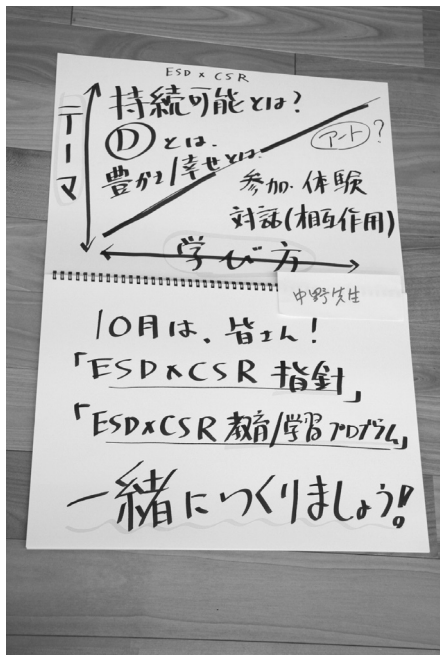 ESD×CSR
テーマ
持続可能とは?
Ⓓとは、
豊かさ/幸せとは
アート?
参加・体験
対話(相互作用)
学び方
中野先生
10月は、皆さん!
「ESD×CSR 指針」
「ESD×CSR 教育/学習プログラム」
一緒につくりましょう!